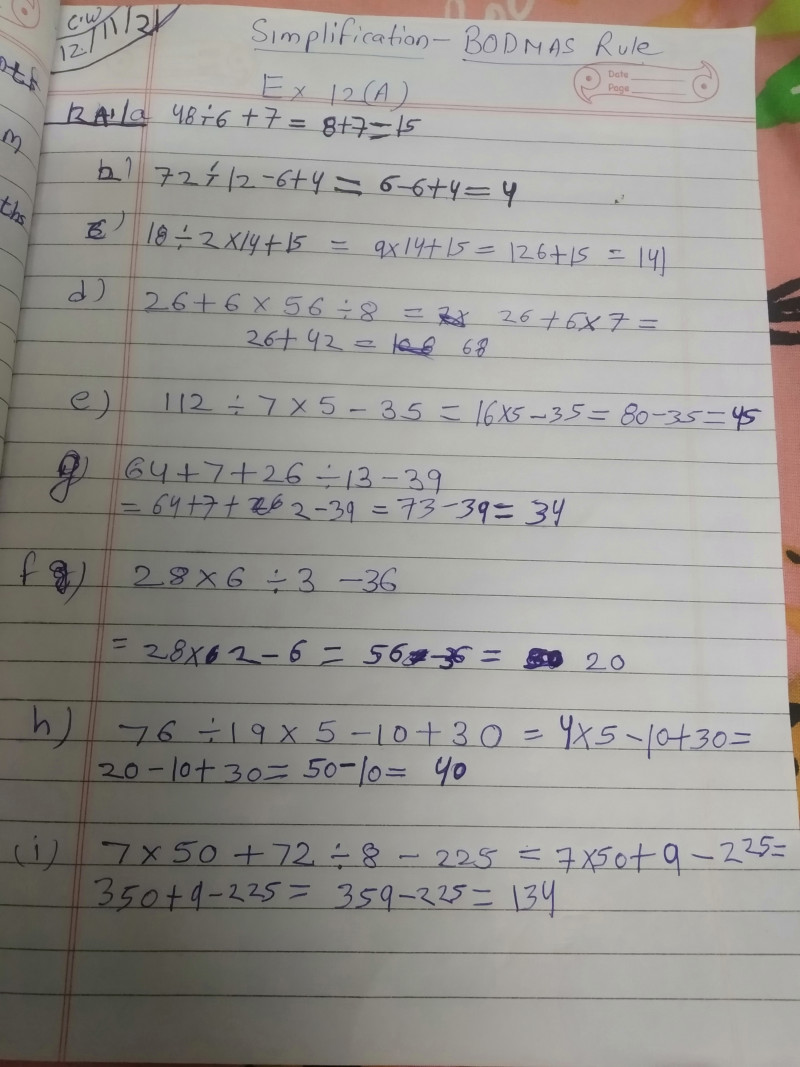 C.W
12/11/21
Simplification - BODMAS Rule
Date
Page
Ex 12(A)
48÷6+7 = 8+7=15
b) 72÷12-6+4 = 6-6+4=4
c) 18÷2×14+15 = 9×14+15 = 126+15 = 141
d) 26+6×56÷8 = 26+6×7 =
26+42 = 68
e) 112÷7×5-35 = 16×5-35 = 80-35=45
g) 64+7+26÷13-39
= 64+7+2-39 = 73-39= 34
f) 28×6÷3-36
= 28×2-6 = 56-36 = 20
h) 76÷19×5-10+30 = 4×5-10+30=
20-10+30= 50-10= 40
(i) 7×50+72÷8-225 = 7×50+9-225=
350+9-225= 359-225= 134